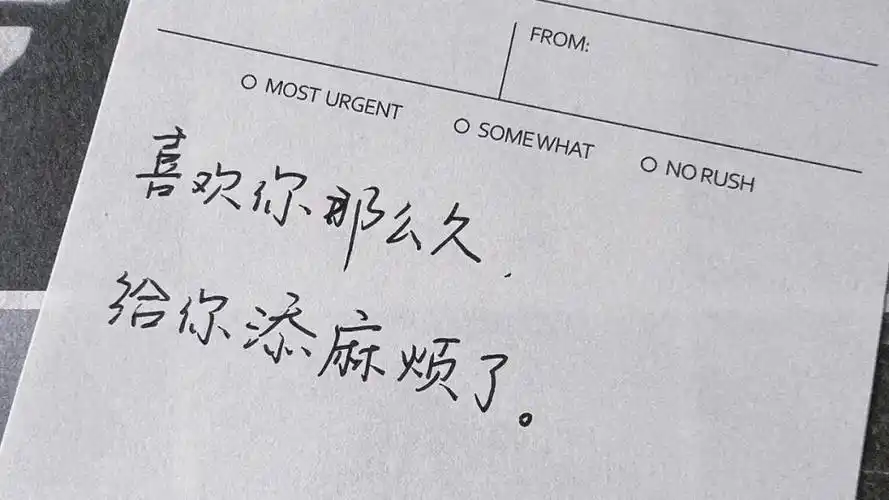 FROM:
O MOST URGENT
O SOMEWHAT
O NO RUSH
喜欢你那么久,
给你添麻烦了。